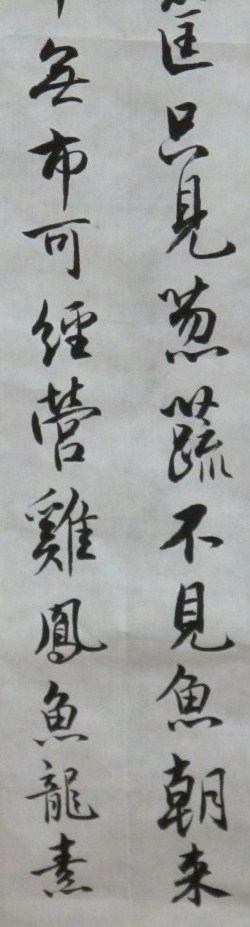 匡只見葱蔬不見魚朝来
無市可經營雞鳳魚龍素